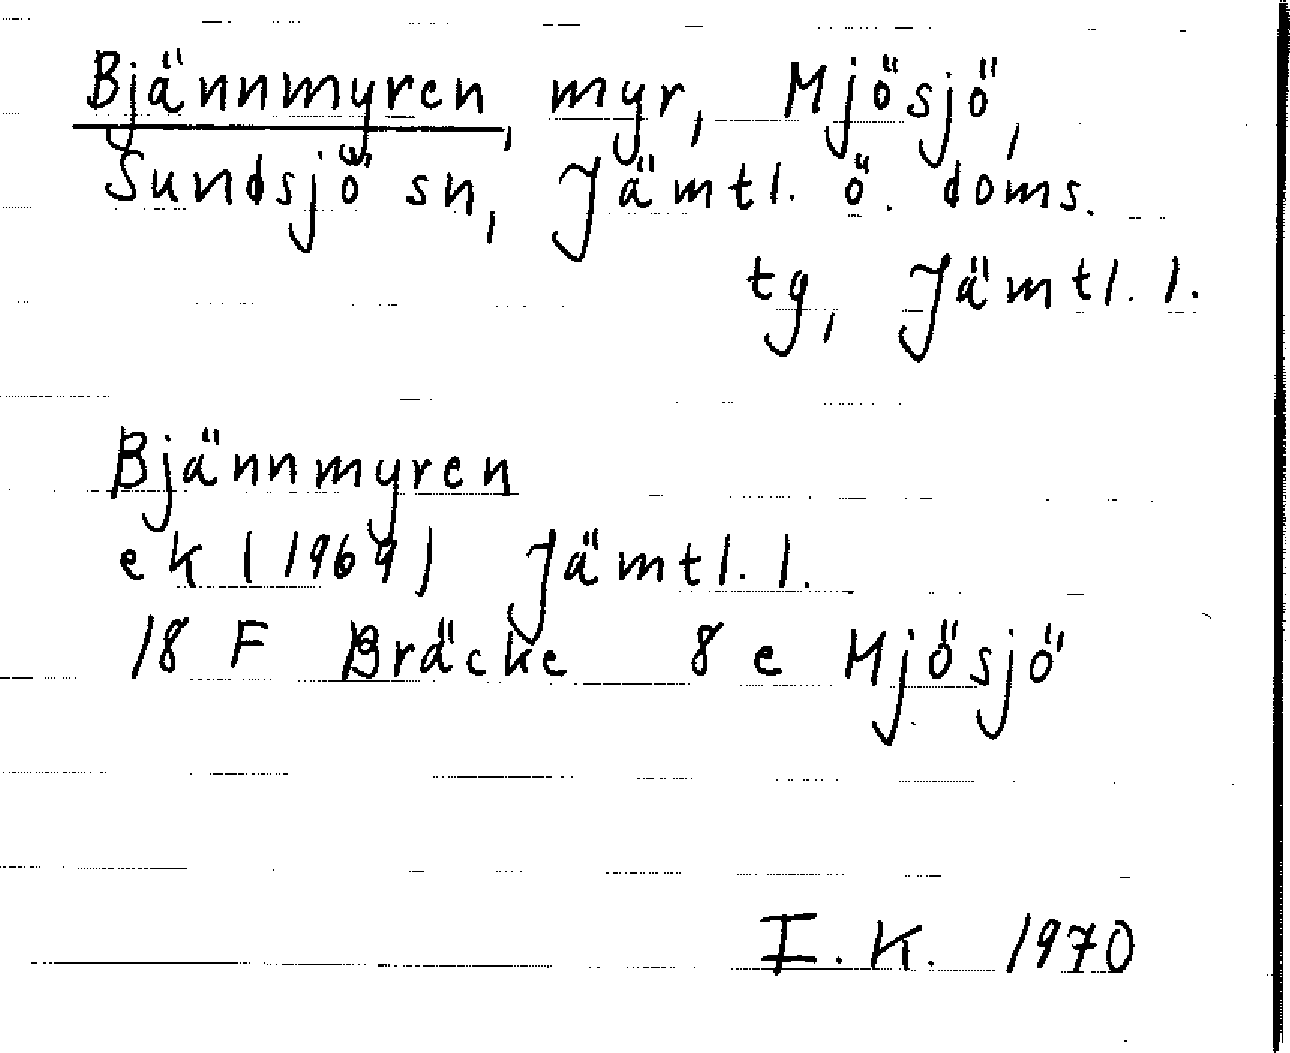 Bjännmyren, myr, Mjösjö,
Sundsjö sn, Jämtl. ö. doms.
tg, Jämtl. l.
Bjännmyren
ek (1969) Jämtl. l.
18 F Bräcke 8 e Mjösjö
I. K. 1970